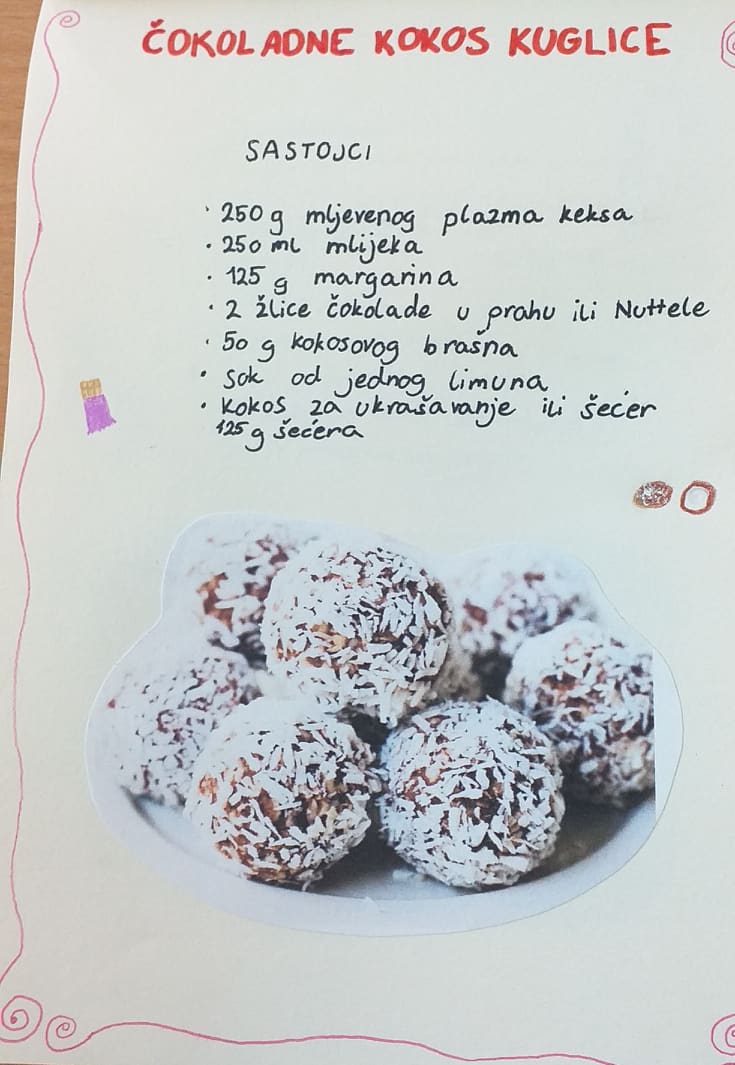 ČOKOLADNE KOKOS KUGLICE
SASTOJCI
• 250 g mljevenog plazma keksa
• 250 ml mlijeka
• 125 g margarina
• 2 žlice čokolade u prahu ili Nuttele
• 50 g kokosovog brašna
• sok od jednog limuna
• kokos za ukrašavanje ili šećer
125 g šećera